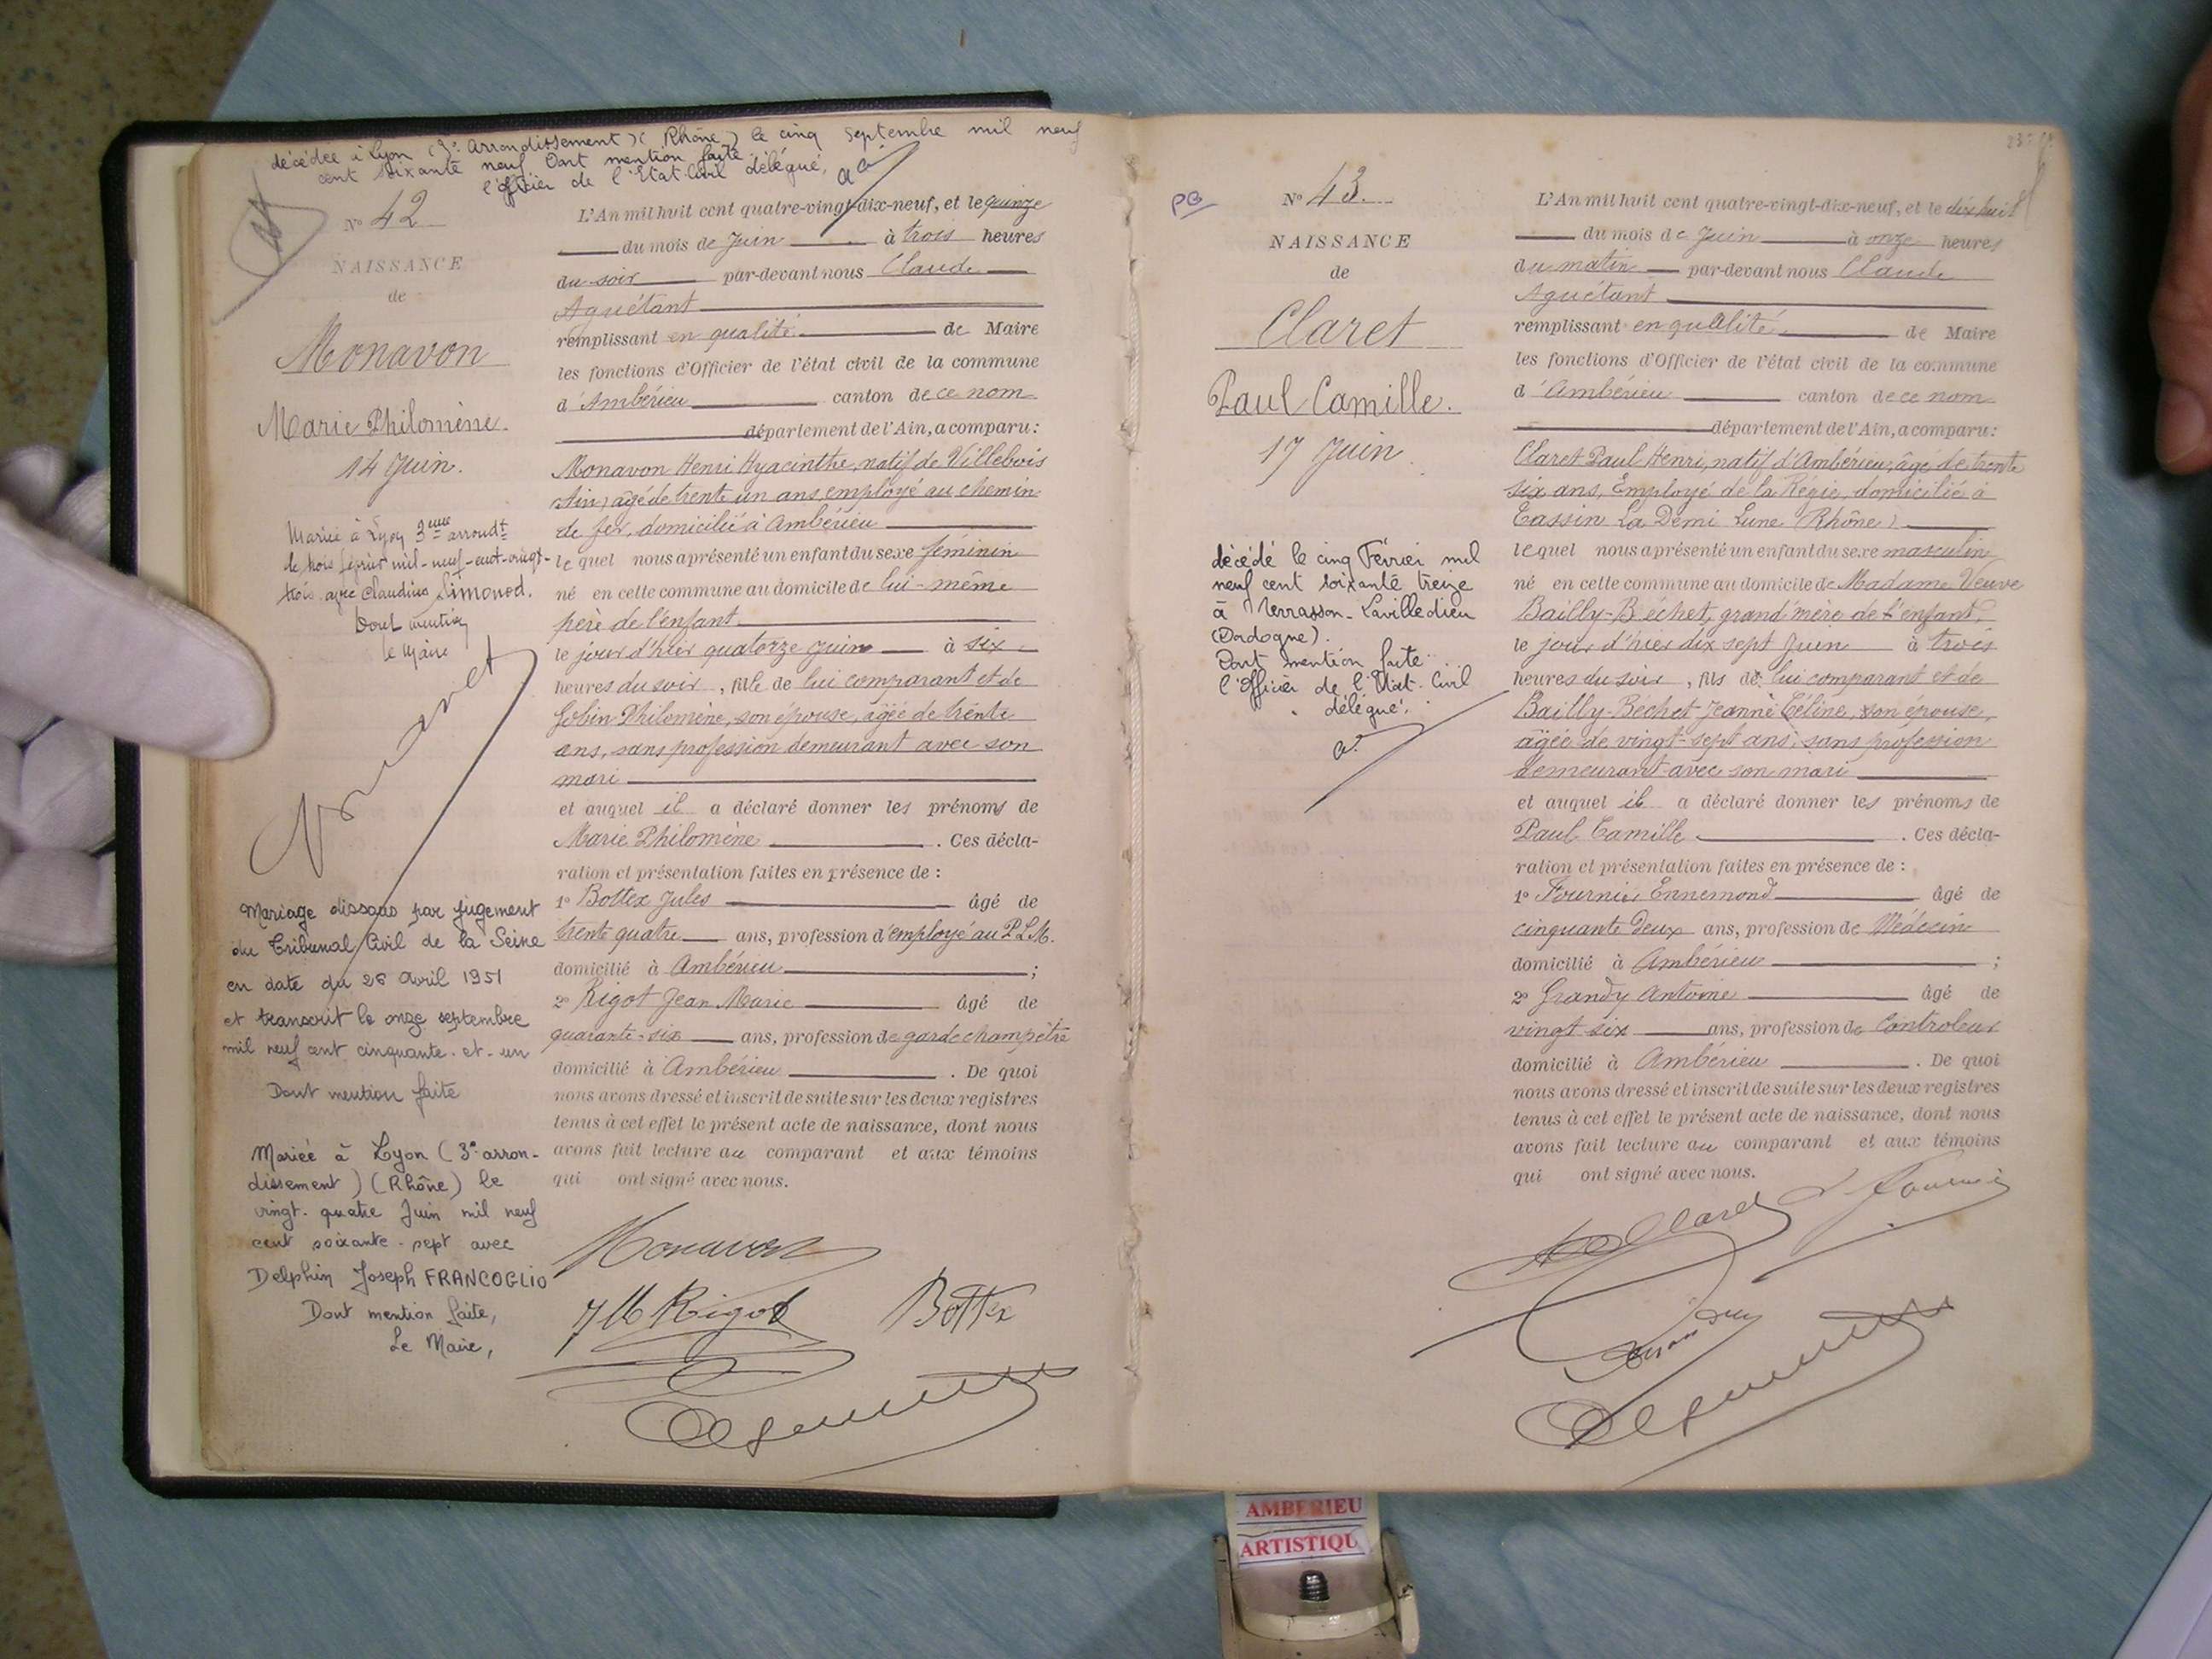 décédée à Lyon (3e Arrondissement) (Rhône) le cinq septembre mil neuf
cent soixante neuf Dont mention faite
l'officier de l'Etat Civil délégué,
No 42
NAISSANCE
de
Monavon
Marie Philomène.
14 Juin.
Mariée à Lyon 3eme arrondt
le trois février mil-neuf-cent-vingt-
trois avec Claudius Simonod.
Dont mention
le Maire
Mariage dissous par jugement
du Tribunal Civil de la Seine
en date du 26 Avril 1951
et transcrit le onze septembre
mil neuf cent cinquante-et-un
Dont mention faite
Mariée à Lyon (3e arron-
dissement) (Rhône) le
vingt-quatre Juin mil neuf
cent soixante-sept avec
Delphin Joseph FRANCOGLIO
Dont mention faite,
Le Maire,
L'An mil huit cent quatre-vingt-dix-neuf, et le quinze
du mois de Juin à trois heures
du soir par-devant nous Claude
Aguétant
remplissant en qualité de Maire
les fonctions d'Officier de l'état civil de la commune
d'Ambérieu canton de ce nom
département de l'Ain, a comparu :
Monavon Henri Hyacinthe, natif de Villebois
(Ain) âgé de trente un ans, employé au chemin
de fer, domicilié à Ambérieu
lequel nous a présenté un enfant du sexe féminin
né en cette commune au domicile de lui-même
père de l'enfant
le jour d'hier quatorze Juin à six
heures du soir, fille de lui comparant et de
Gobin Philomène, son épouse, âgée de trente
ans, sans profession demeurant avec son
mari
et auquel il a déclaré donner les prénoms de
Marie Philomène. Ces décla-
ration et présentation faites en présence de :
1o Bottex Jules âgé de
trente quatre ans, profession d'employé au P.L.M.
domicilié à Ambérieu ;
2o Rigot Jean Marie âgé de
quarante-six ans, profession de garde champêtre
domicilié à Ambérieu. De quoi
nous avons dressé et inscrit de suite sur les deux registres
tenus à cet effet le présent acte de naissance, dont nous
avons fait lecture au comparant et aux témoins
qui ont signé avec nous.
Monavon
JM Rigot Bottex
PG
No 43.
NAISSANCE
de
Claret
Paul Camille.
17 Juin
décédé le cinq Février mil
neuf cent soixante treize
à Terrasson-Lavilledieu
(Dordogne).
Dont mention faite
l'Officier de l'Etat-Civil
délégué.
L'An mil huit cent quatre-vingt-dix-neuf, et le dix huit
du mois de Juin à onze heures
du matin par-devant nous Claude
Aguétant
remplissant en qualité de Maire
les fonctions d'Officier de l'état civil de la commune
d'Ambérieu canton de ce nom
département de l'Ain, a comparu :
Claret Paul Henri, natif d'Ambérieu, âgé de trente
six ans, Employé de la Régie, domicilié à
Tassin La Demi Lune (Rhône)
lequel nous a présenté un enfant du sexe masculin
né en cette commune au domicile de Madame Veuve
Bailly-Béchet, grand'mère de l'enfant,
le jour d'hier dix sept Juin à trois
heures du soir, fils de lui comparant et de
Bailly-Béchet Jeanne Céline, son épouse,
âgée de vingt-sept ans, sans profession
demeurant avec son mari
et auquel il a déclaré donner les prénoms de
Paul Camille. Ces décla-
ration et présentation faites en présence de :
1o Fournier Ennemond âgé de
cinquante deux ans, profession de Médecin
domicilié à Ambérieu ;
2o Grandy Antoine âgé de
vingt six ans, profession de Controleur
domicilié à Ambérieu. De quoi
nous avons dressé et inscrit de suite sur les deux registres
tenus à cet effet le présent acte de naissance, dont nous
avons fait lecture au comparant et aux témoins
qui ont signé avec nous.
Claret Fournier
AMBERIEU
ARTISTIQU